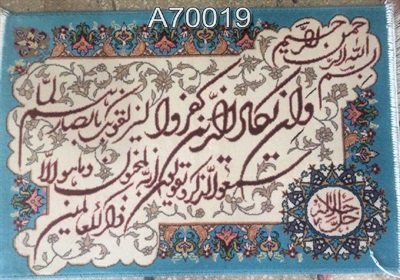 A70019
بسم الله الرحمن الرحیم
وان یکاد الذین کفروا لیزلقونک بابصارهم لما
سمعوا الذکر و یقولون انه لمجنون و ما هو الا
ذکر للعالمین
جل جلاله